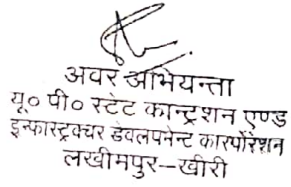 अवर अभियन्ता
यू० पी० स्टेट कान्ट्रशन एण्ड
इन्फ्रास्ट्रक्चर डेवलपमेन्ट कारपोरेशन
लखीमपुर–खीरी